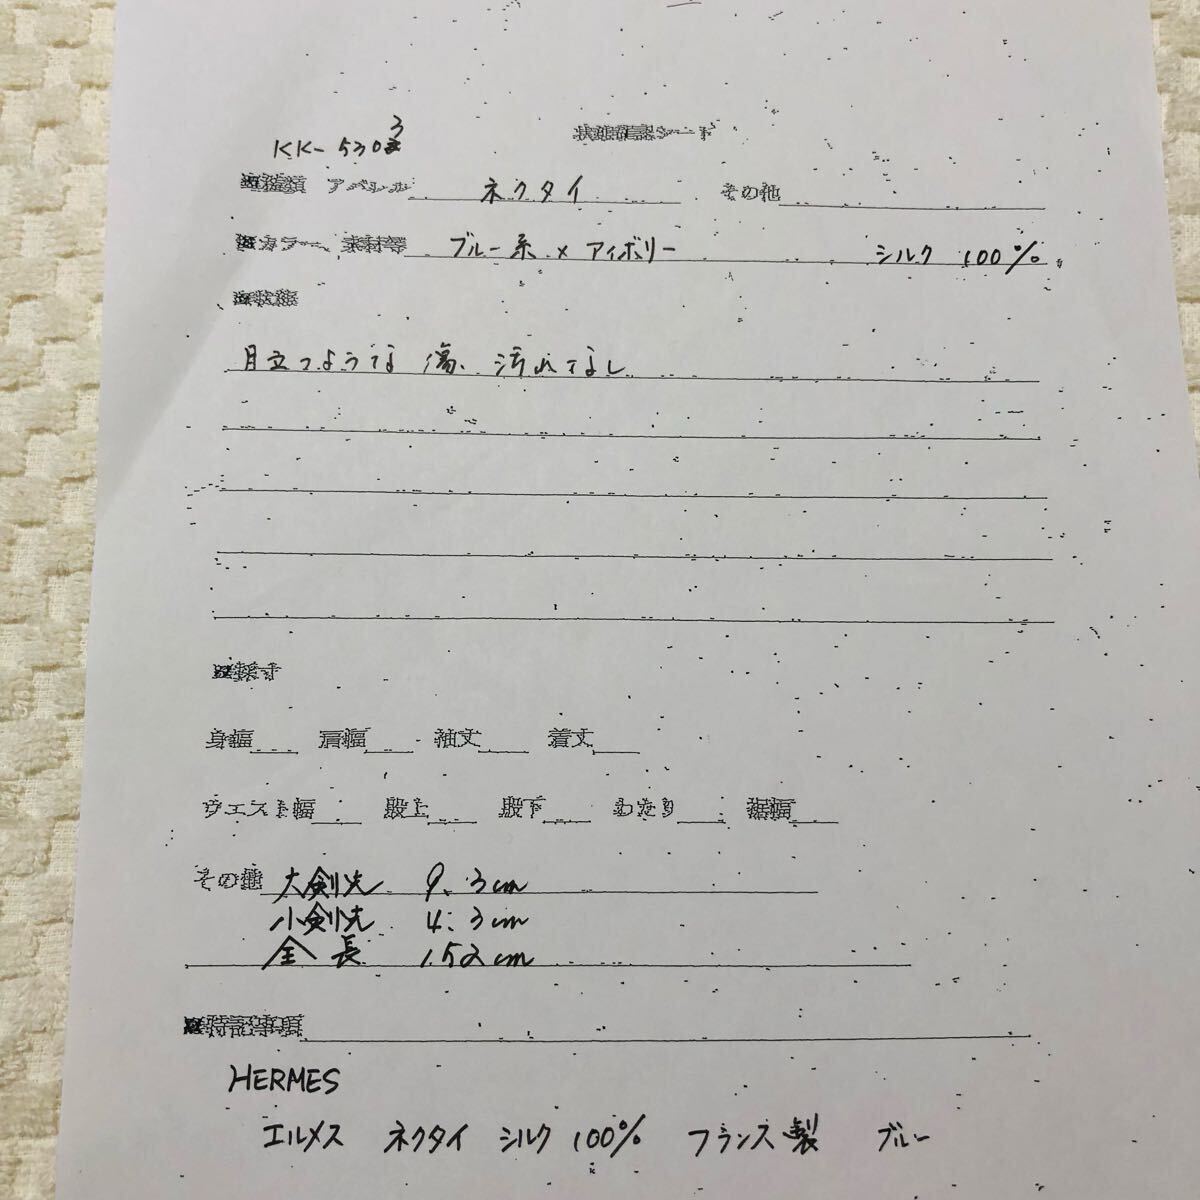 状態確認シート
KK-5303
※種類 アパレル ネクタイ その他
※カラー、素材等 ブルー系 × アイボリー シルク 100%
※状態
目立つような傷、汚れなし
※採寸
身幅 肩幅 袖丈 着丈
ウエスト幅 股上 股下 わたり 裾幅
その他 大剣先 9.3cm
小剣先 4.3cm
全長 152cm
※特記事項
HERMES
エルメス ネクタイ シルク 100% フランス製 ブルー